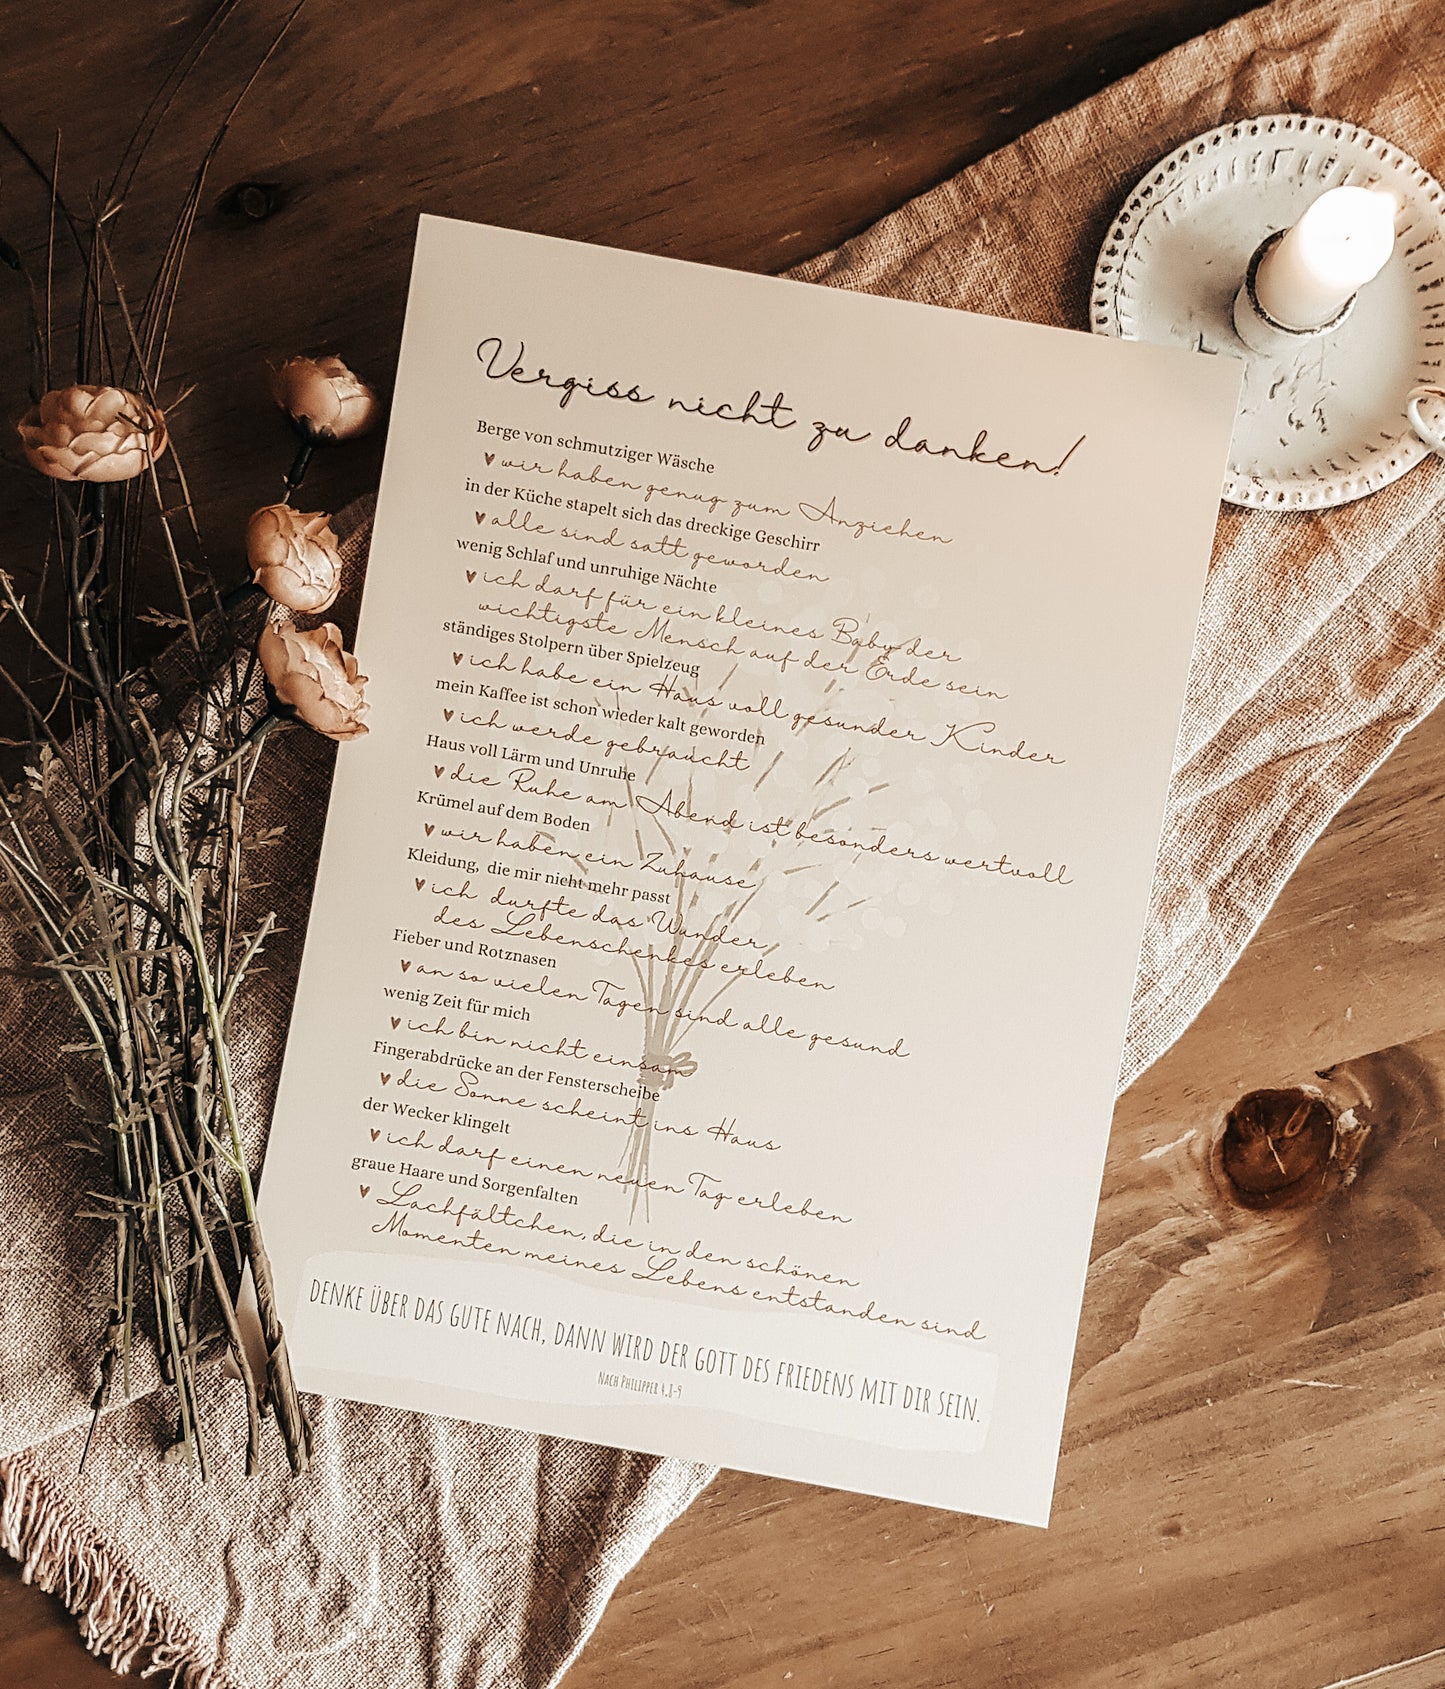 Vergiss nicht zu danken!
Berge von schmutziger Wäsche
wir haben genug zum Anziehen
in der Küche stapelt sich das dreckige Geschirr
alle sind satt geworden
wenig Schlaf und unruhige Nächte
ich darf für ein kleines Baby der
wichtigste Mensch auf der Erde sein
ständiges Stolpern über Spielzeug
ich habe ein Haus voll gesunder Kinder
mein Kaffee ist schon wieder kalt geworden
ich werde gebraucht
Haus voll Lärm und Unruhe
die Ruhe am Abend ist besonders wertvoll
Krümel auf dem Boden
wir haben ein Zuhause
Kleidung, die mir nicht mehr passt
ich durfte das Wunder
des Lebenschenkes erleben
Fieber und Rotznasen
an so vielen Tagen sind alle gesund
wenig Zeit für mich
ich bin nicht einsam
Fingerabdrücke an der Fensterscheibe
die Sonne scheint ins Haus
der Wecker klingelt
ich darf einen neuen Tag erleben
graue Haare und Sorgenfalten
Lachfältchen, die in den schönen
Momenten meines Lebens entstanden sind
DENKE ÜBER DAS GUTE NACH, DANN WIRD DER GOTT DES FRIEDENS MIT DIR SEIN.
NACH PHILIPPER 4,8-9